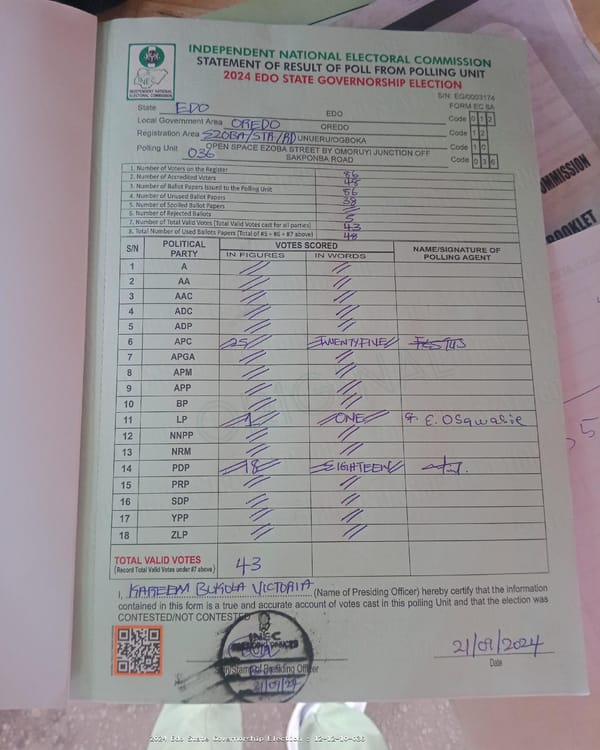 INDEPENDENT NATIONAL ELECTORAL COMMISSION
STATEMENT OF RESULT OF POLL FROM POLLING UNIT
2024 EDO STATE GOVERNORSHIP ELECTION
INEC
INDEPENDENT NATIONAL ELECTORAL COMMISSION
S/N: EG/0003174
FORM EC 8A
State EDO EDO Code 0 1 2
Local Government Area OREDO OREDO Code 1 2
Registration Area EZOBA/STR/RD UNUERU/OGBOKA Code 1 0
Polling Unit 036 OPEN SPACE EZOBA STREET BY OMORUYI JUNCTION OFF SAKPONBA ROAD Code 0 3 6
1. Number of Voters on the Register 86
2. Number of Accredited Voters 48
3. Number of Ballot Papers Issued to the Polling Unit 86
4. Number of Unused Ballot Papers 38
5. Number of Spoiled Ballot Papers
6. Number of Rejected Ballots 5
7. Number of Total Valid Votes (Total Valid Votes cast for all parties) 43
8. Total Number of Used Ballots Papers (Total of #5 + #6 + #7 above) 48
S/N POLITICAL PARTY VOTES SCORED NAME/SIGNATURE OF POLLING AGENT
IN FIGURES IN WORDS
1 A
2 AA
3 AAC
4 ADC
5 ADP
6 APC 25 TWENTYFIVE FESTUS
7 APGA
8 APM
9 APP
10 BP
11 LP 1 ONE E. Osawasie
12 NNPP
13 NRM
14 PDP 18 EIGHTEEN
15 PRP
16 SDP
17 YPP
18 ZLP
TOTAL VALID VOTES 43
(Record Total Valid Votes under #7 above)
I, KAREEM BUKOLA VICTORIA (Name of Presiding Officer) hereby certify that the information
contained in this form is a true and accurate account of votes cast in this polling Unit and that the election was
CONTESTED/NOT CONTESTED
INEC
21/09/24
Sign/Stamp of Presiding Officer
21/09/2024
Date
ORIGINAL
COMMISSION
BOOKLET
2024 Edo State Governorship Election : 12-12-10-036